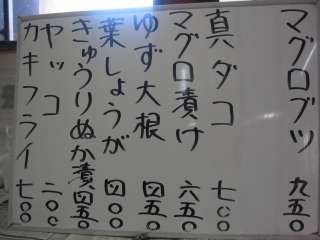 マグロブツ 九五〇
真ダコ 七〇〇
マグロ漬け 六五〇
ゆず大根 四五〇
葉しょうが 四〇〇
きゅうりぬか漬 四五〇
ヤッコ 二〇〇
カキフライ 七〇〇